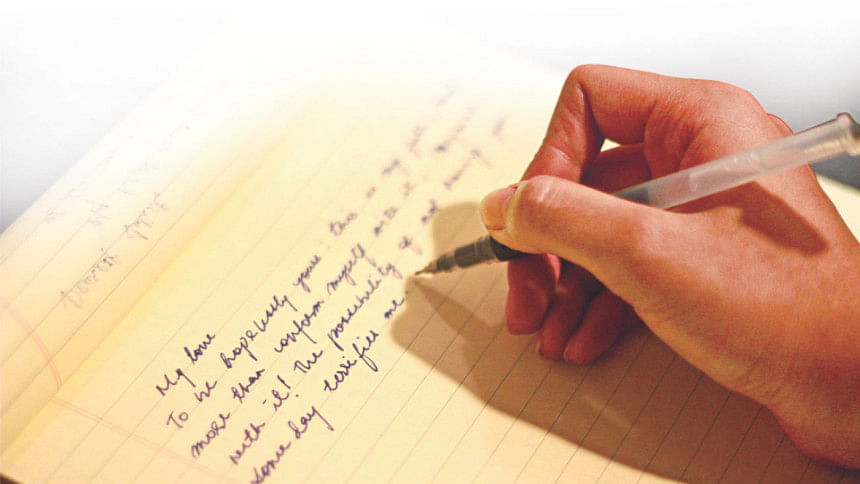 My love
To be hopelessly yours: this is my fate and
more than conform myself with it! 
with it! The possibility of not having you
some day terrifies me.